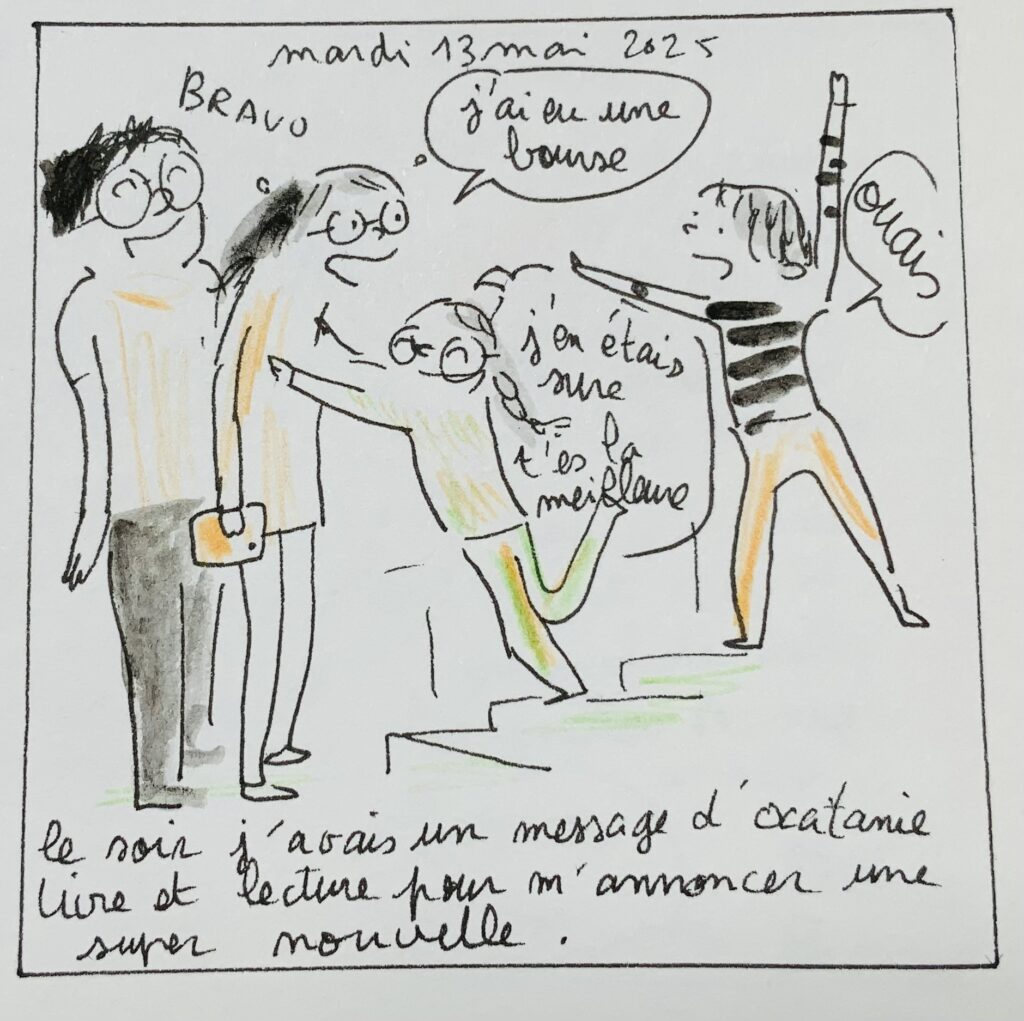 mardi 13 mai 2025
BRAVO
j'ai eu une
bourse
ouais
j'en étais
sure
t'es la
meilleure
le soir j'avais un message d'occatanie
livre et lecture pour m'annoncer une
super nouvelle.